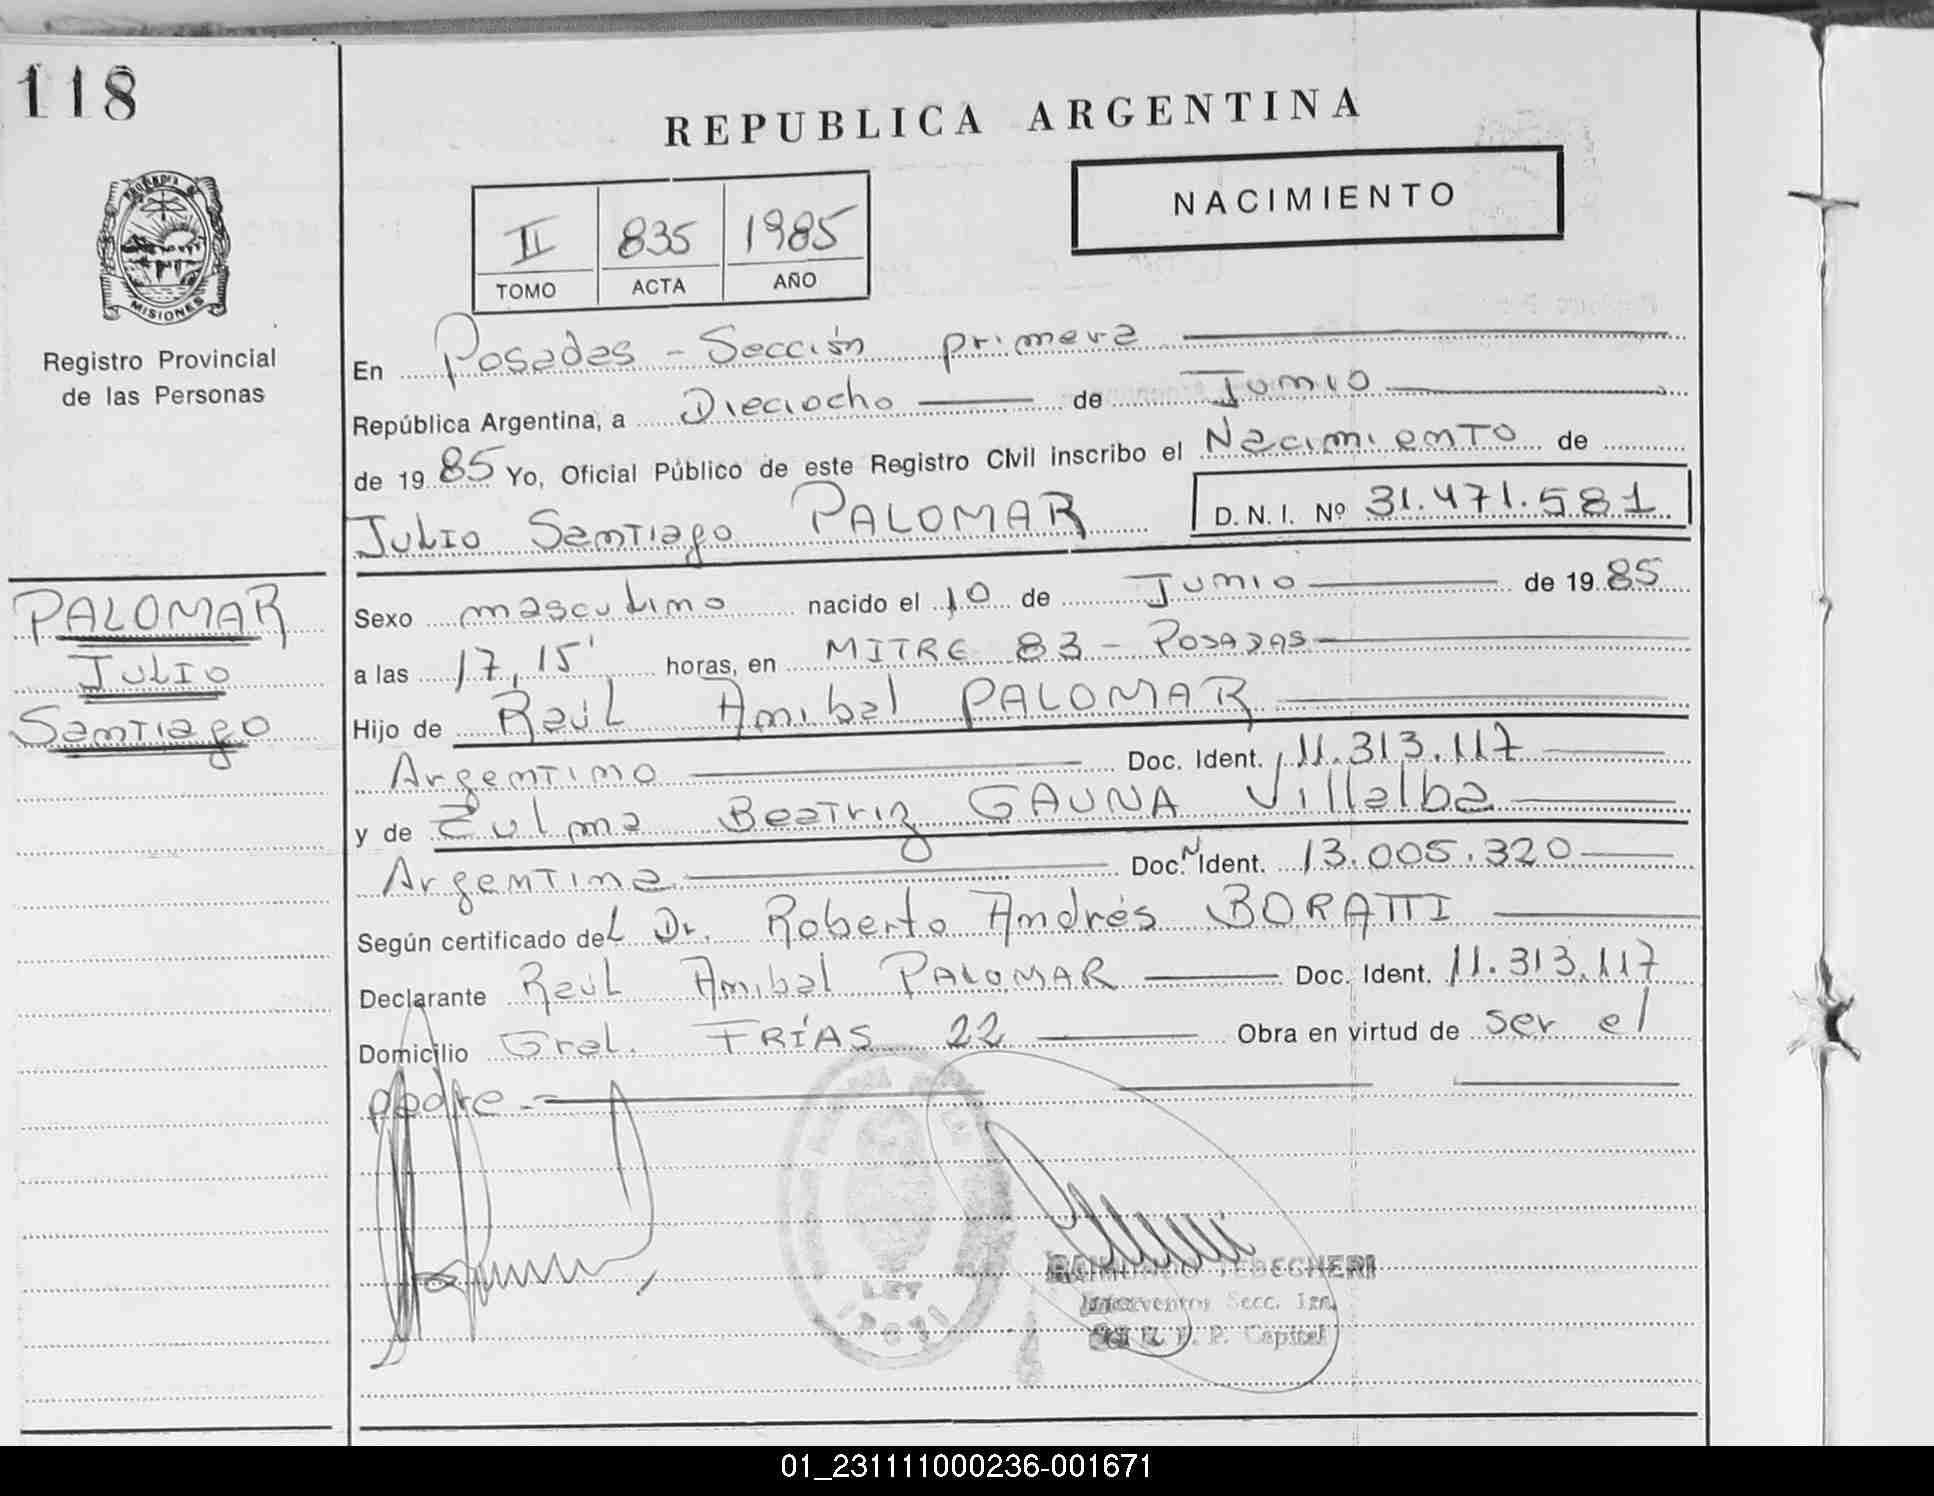 118
REPUBLICA ARGENTINA
NACIMIENTO
II 835 1985
TOMO ACTA AÑO
MISIONES
Registro Provincial
de las Personas
En Posadas - Sección primera
República Argentina, a Dieciocho de Junio
de 1985 Yo, Oficial Público de este Registro Civil inscribo el Nacimiento de
Julio Santiago PALOMAR D.N.I. Nº 31.471.581
PALOMAR
Julio
Santiago
Sexo masculino nacido el 10 de Junio de 1985
a las 17,15' horas, en MITRE 83 - POSADAS
Hijo de Raúl Anibal PALOMAR
Argentino Doc. Ident. 11.313.117
y de Zulma Beatriz GAUNA Villalba
Argentina Doc. N Ident. 13.005.320
Según certificado del Dr. Roberto Andrés BORATTI
Declarante Raúl Anibal PALOMAR Doc. Ident. 11.313.117
Domicilio Gral. FRÍAS 22 Obra en virtud de ser el
padre.-
LEY
RAIMUNDO TEDEGHERI
Interventor Secc. 1ra.
R. P. P. Capital
01_231111000236-001671